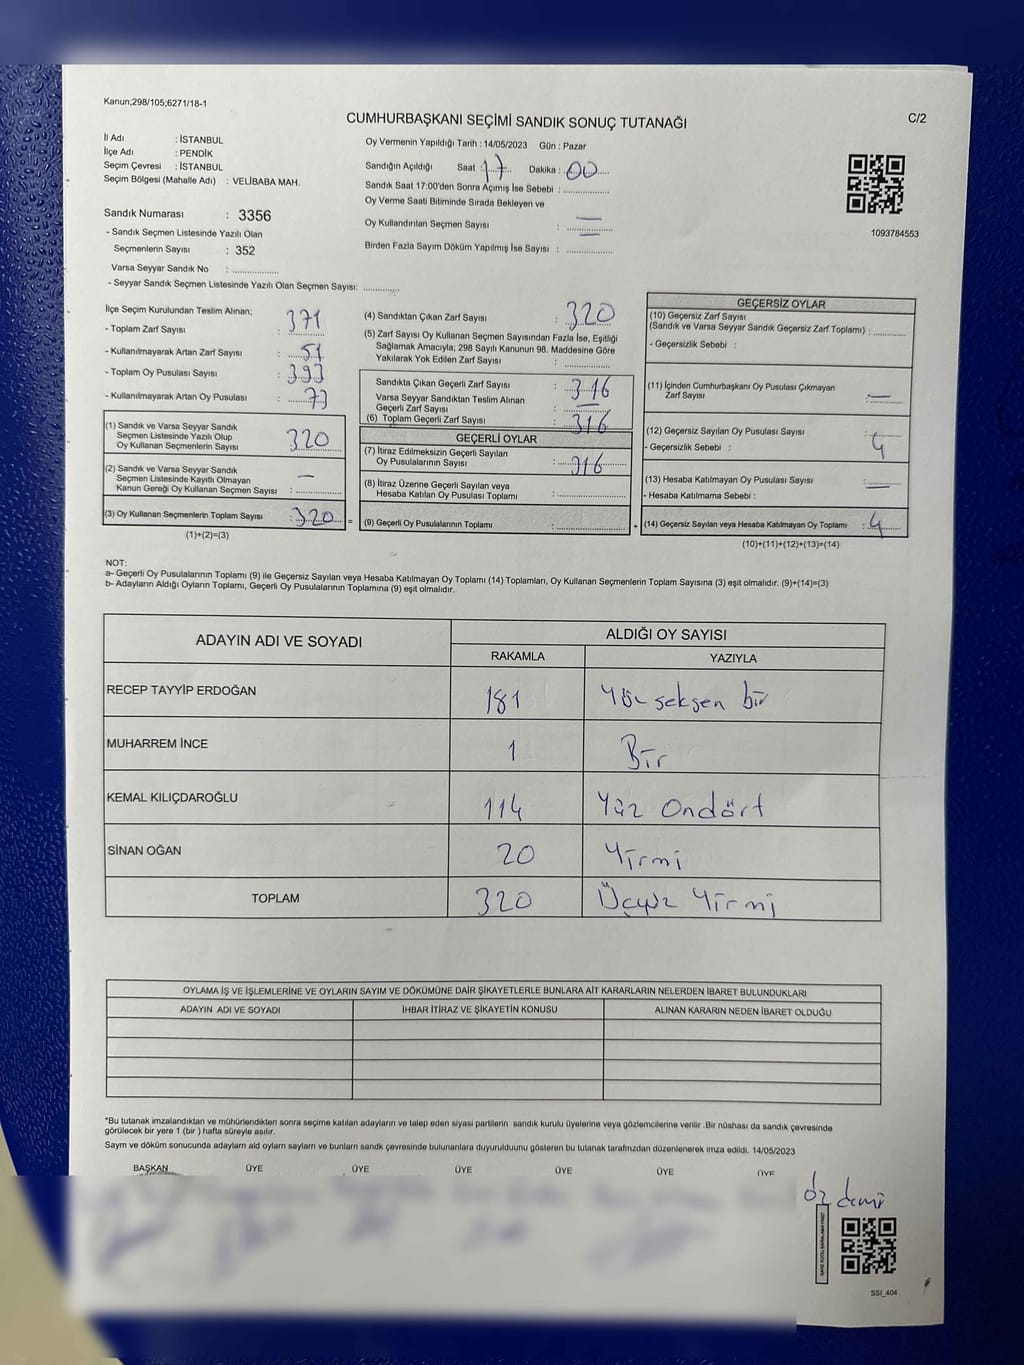 Kanun;298/105;6271/18-1
CUMHURBAŞKANI SEÇİMİ SANDIK SONUÇ TUTANAĞI
C/2
İl Adı : İSTANBUL
İlçe Adı : PENDİK
Seçim Çevresi : İSTANBUL
Seçim Bölgesi (Mahalle Adı) : VELİBABA MAH.
Sandık Numarası : 3356
- Sandık Seçmen Listesinde Yazılı Olan
Seçmenlerin Sayısı : 352
Varsa Seyyar Sandık No : ..............
- Seyyar Sandık Seçmen Listesinde Yazılı Olan Seçmen Sayısı: ...........
Oy Vermenin Yapıldığı Tarih : 14/05/2023 Gün : Pazar
Sandığın Açıldığı Saat : 17 Dakika : 00
Sandık Saat 17:00'den Sonra Açımış İse Sebebi : ..............
Oy Verme Saati Bitiminde Sırada Bekleyen ve
Oy Kullandırılan Seçmen Sayısı : —
Birden Fazla Sayım Döküm Yapılmış İse Sayısı : ..............
1093784553
İlçe Seçim Kurulundan Teslim Alınan;
- Toplam Zarf Sayısı : 371
- Kullanılmayarak Artan Zarf Sayısı : 51
- Toplam Oy Pusulası Sayısı : 393
- Kullanılmayarak Artan Oy Pusulası : 73
(1) Sandık ve Varsa Seyyar Sandık
Seçmen Listesinde Yazılı Olup
Oy Kullanan Seçmenlerin Sayısı : 320
(2) Sandık ve Varsa Seyyar Sandık
Seçmen Listesinde Kayıtlı Olmayan
Kanun Gereği Oy Kullanan Seçmen Sayısı : —
(3) Oy Kullanan Seçmenlerin Toplam Sayısı : 320
=
(1)+(2)=(3)
(4) Sandıktan Çıkan Zarf Sayısı : 320
(5) Zarf Sayısı Oy Kullanan Seçmen Sayısından Fazla İse, Eşitliği
Sağlamak Amacıyla; 298 Sayılı Kanunun 98. Maddesine Göre
Yakılarak Yok Edilen Zarf Sayısı : ..............
Sandıkta Çıkan Geçerli Zarf Sayısı : 316
Varsa Seyyar Sandıktan Teslim Alınan
Geçerli Zarf Sayısı : —
(6) Toplam Geçerli Zarf Sayısı : 316
GEÇERLİ OYLAR
(7) İtiraz Edilmeksizin Geçerli Sayılan
Oy Pusulalarının Sayısı : 316
(8) İtiraz Üzerine Geçerli Sayılan veya
Hesaba Katılan Oy Pusulası Toplamı : ..............
(9) Geçerli Oy Pusulalarının Toplamı : ..............
+
GEÇERSİZ OYLAR
(10) Geçersiz Zarf Sayısı
(Sandık ve Varsa Seyyar Sandık Geçersiz Zarf Toplamı) : ...........
- Geçersizlik Sebebi :
(11) İçinden Cumhurbaşkanı Oy Pusulası Çıkmayan
Zarf Sayısı : —
(12) Geçersiz Sayılan Oy Pusulası Sayısı : 4
- Geçersizlik Sebebi :
(13) Hesaba Katılmayan Oy Pusulası Sayısı : —
- Hesaba Katılmama Sebebi :
(14) Geçersiz Sayılan veya Hesaba Katılmayan Oy Toplamı : 4
(10)+(11)+(12)+(13)=(14)
NOT:
a- Geçerli Oy Pusulalarının Toplamı (9) ile Geçersiz Sayılan veya Hesaba Katılmayan Oy Toplamı (14) Toplamları, Oy Kullanan Seçmenlerin Toplam Sayısına (3) eşit olmalıdır. (9)+(14)=(3)
b- Adayların Aldığı Oyların Toplamı, Geçerli Oy Pusulalarının Toplamına (9) eşit olmalıdır.
ADAYIN ADI VE SOYADI
ALDIĞI OY SAYISI
RAKAMLA YAZIYLA
RECEP TAYYİP ERDOĞAN 181 Yüz seksen bir
MUHARREM İNCE 1 Bir
KEMAL KILIÇDAROĞLU 114 Yüz Ondört
SİNAN OĞAN 20 Yirmi
TOPLAM 320 Üçyüz Yirmi
OYLAMA İŞ VE İŞLEMLERİNE VE OYLARIN SAYIM VE DÖKÜMÜNE DAİR ŞİKAYETLERLE BUNLARA AİT KARARLARIN NELERDEN İBARET BULUNDUKLARI
ADAYIN ADI VE SOYADI İHBAR İTİRAZ VE ŞİKAYETİN KONUSU ALINAN KARARIN NEDEN İBARET OLDUĞU
*Bu tutanak imzalandıktan ve mühürlendikten sonra seçime katılan adayların ve talep eden siyasi partilerin sandık kurulu üyelerine veya gözlemcilerine verilir .Bir nüshası da sandık çevresinde
görülecek bir yere 1 (bir ) hafta süreyle asılır.
Saym ve döküm sonucunda adaylarn ald oylarn saylarn ve bunlarn sandk çevresinde bulunanlara duyurulduunu gösteren bu tutanak tarafmzdan düzenlenerek imza edildi. 14/05/2023
BAŞKAN ÜYE ÜYE ÜYE ÜYE ÜYE ÜYE
SSI_404